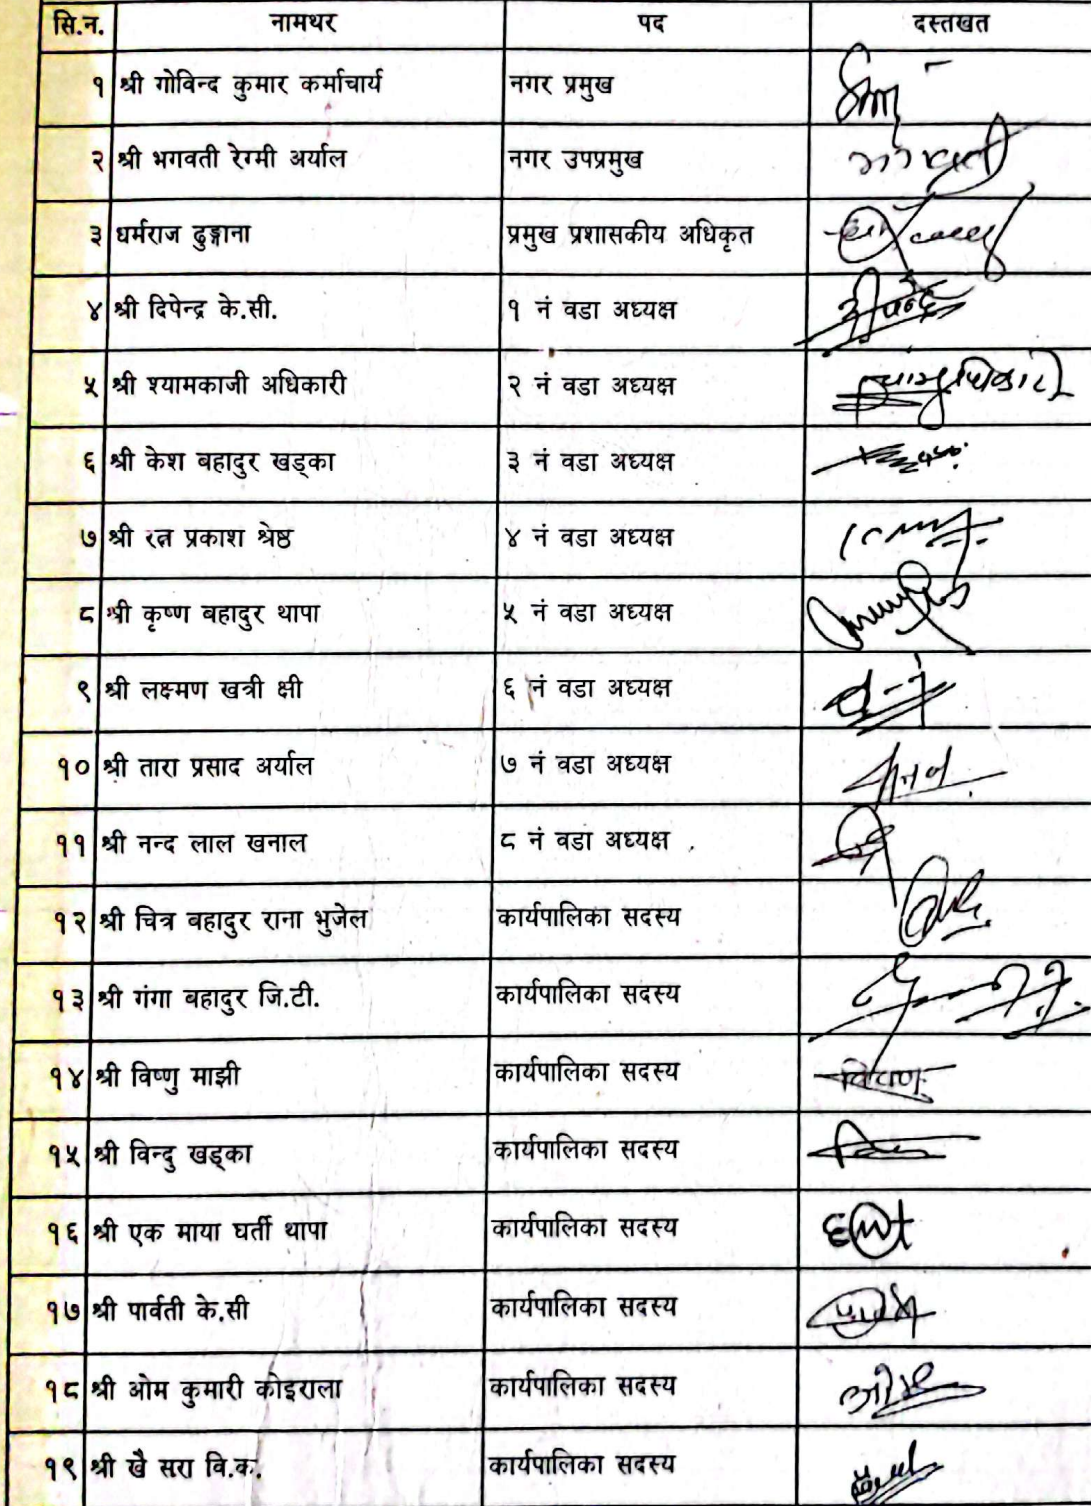 सि.न. नामथर पद दस्तखत
१ श्री गोविन्द कुमार कर्माचार्य नगर प्रमुख
२ श्री भगवती रेग्मी अर्याल नगर उपप्रमुख
३ धर्मराज ढुङ्गाना प्रमुख प्रशासकीय अधिकृत
४ श्री दिपेन्द्र के.सी. १ नं वडा अध्यक्ष
५ श्री श्यामकाजी अधिकारी २ नं वडा अध्यक्ष
६ श्री केश बहादुर खड्का ३ नं वडा अध्यक्ष
७ श्री रत्न प्रकाश श्रेष्ठ ४ नं वडा अध्यक्ष
८ श्री कृष्ण बहादुर थापा ५ नं वडा अध्यक्ष
९ श्री लक्ष्मण खत्री क्षी ६ नं वडा अध्यक्ष
१० श्री तारा प्रसाद अर्याल ७ नं वडा अध्यक्ष
११ श्री नन्द लाल खनाल ८ नं वडा अध्यक्ष
१२ श्री चित्र बहादुर राना भुजेल कार्यपालिका सदस्य
१३ श्री गंगा बहादुर जि.टी. कार्यपालिका सदस्य
१४ श्री विष्णु माझी कार्यपालिका सदस्य
१५ श्री विन्दु खड्का कार्यपालिका सदस्य
१६ श्री एक माया घर्ती थापा कार्यपालिका सदस्य
१७ श्री पार्वती के.सी कार्यपालिका सदस्य
१८ श्री ओम कुमारी कोइराला कार्यपालिका सदस्य
१९ श्री खै सरा वि.क. कार्यपालिका सदस्य